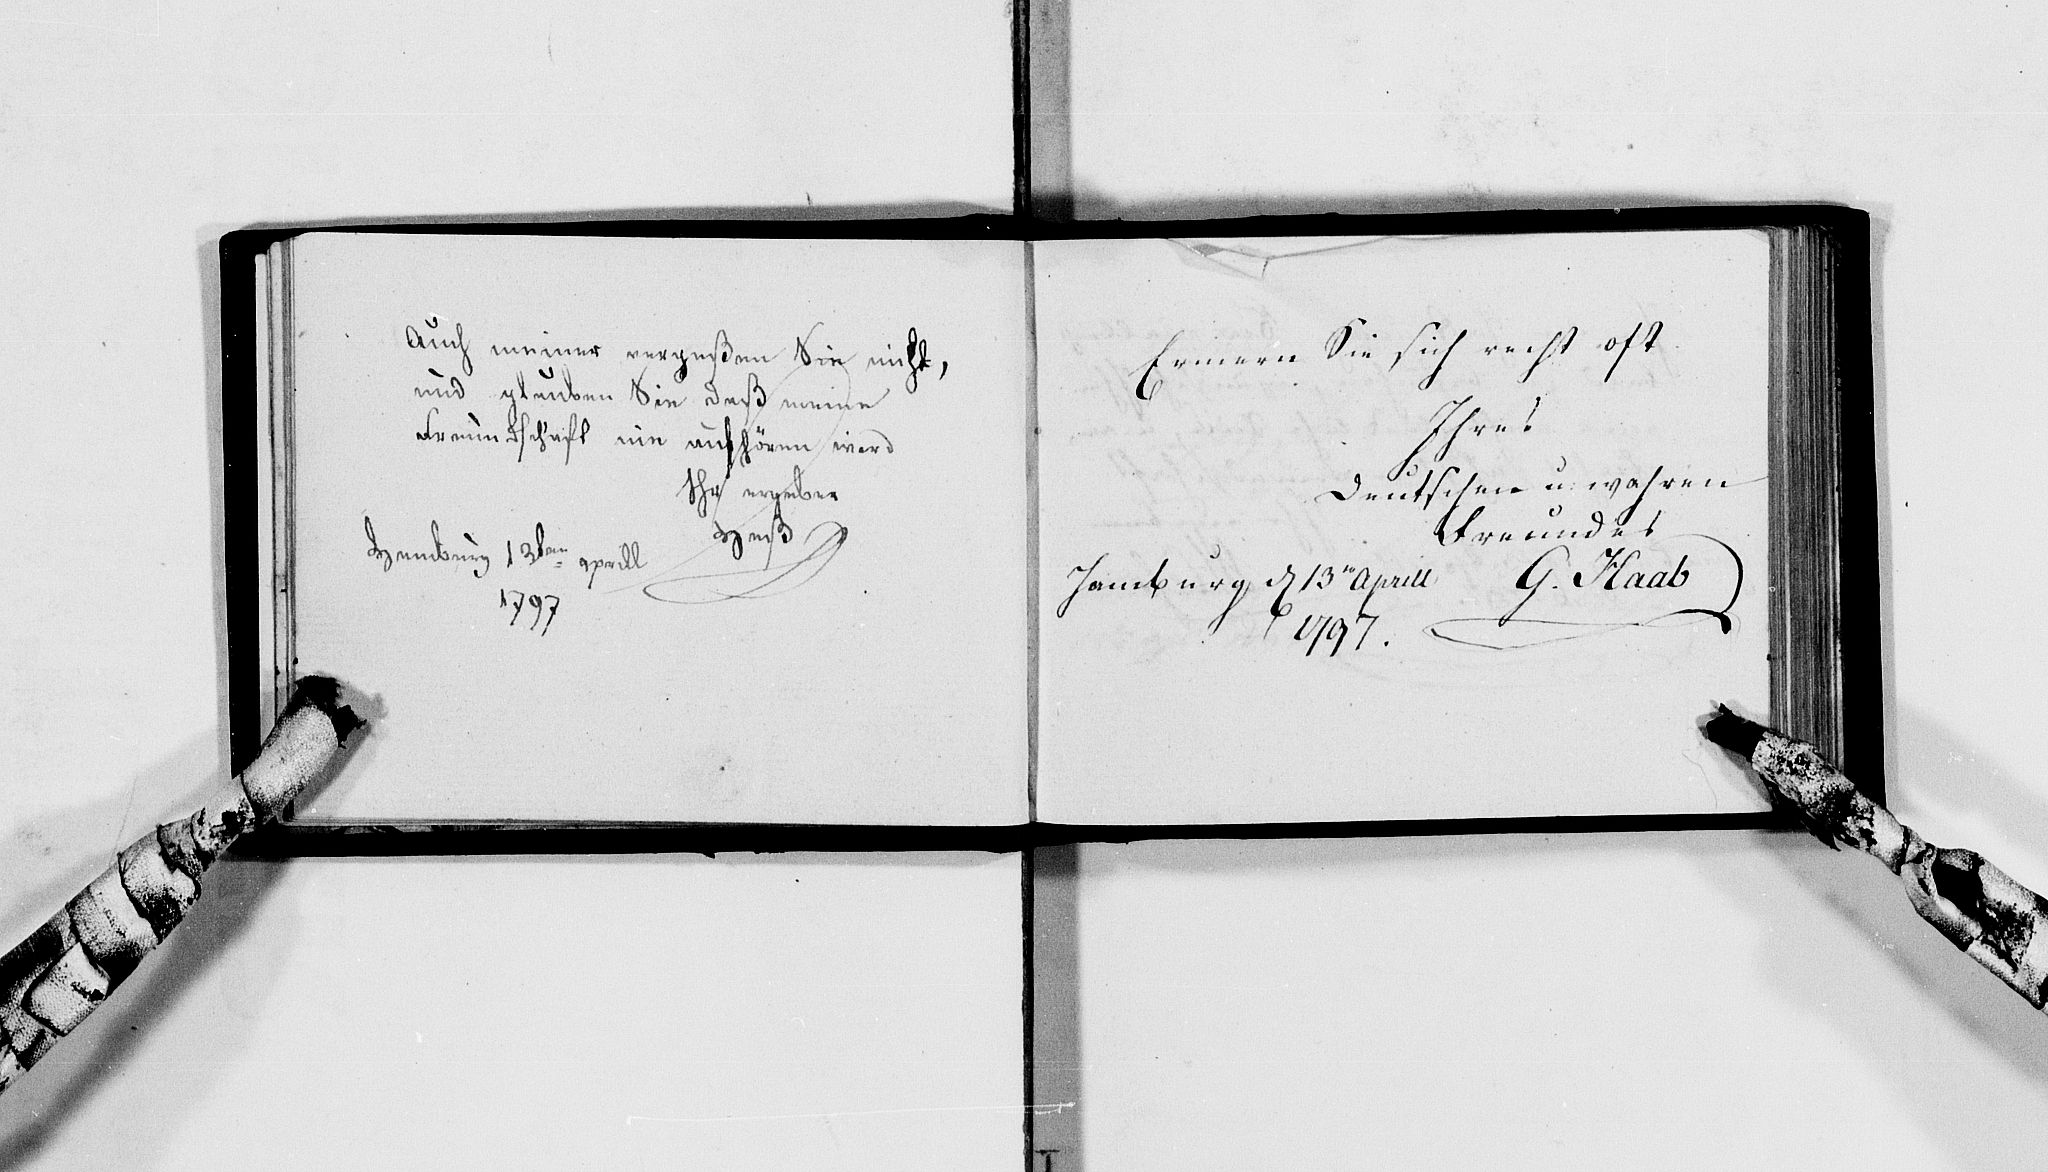 Auch meiner vergeßen Sie nicht,
und glauben Sie daß meine
Freundschaft nie aufhören werd
Ihr ergeber
Heß
Hamburg 13ten aprill
1797
Erinern Sie sich recht oft
Ihres
Deutschen u. wahren
Freundes
Hamburg d 13n Aprill G. Haab
1797.